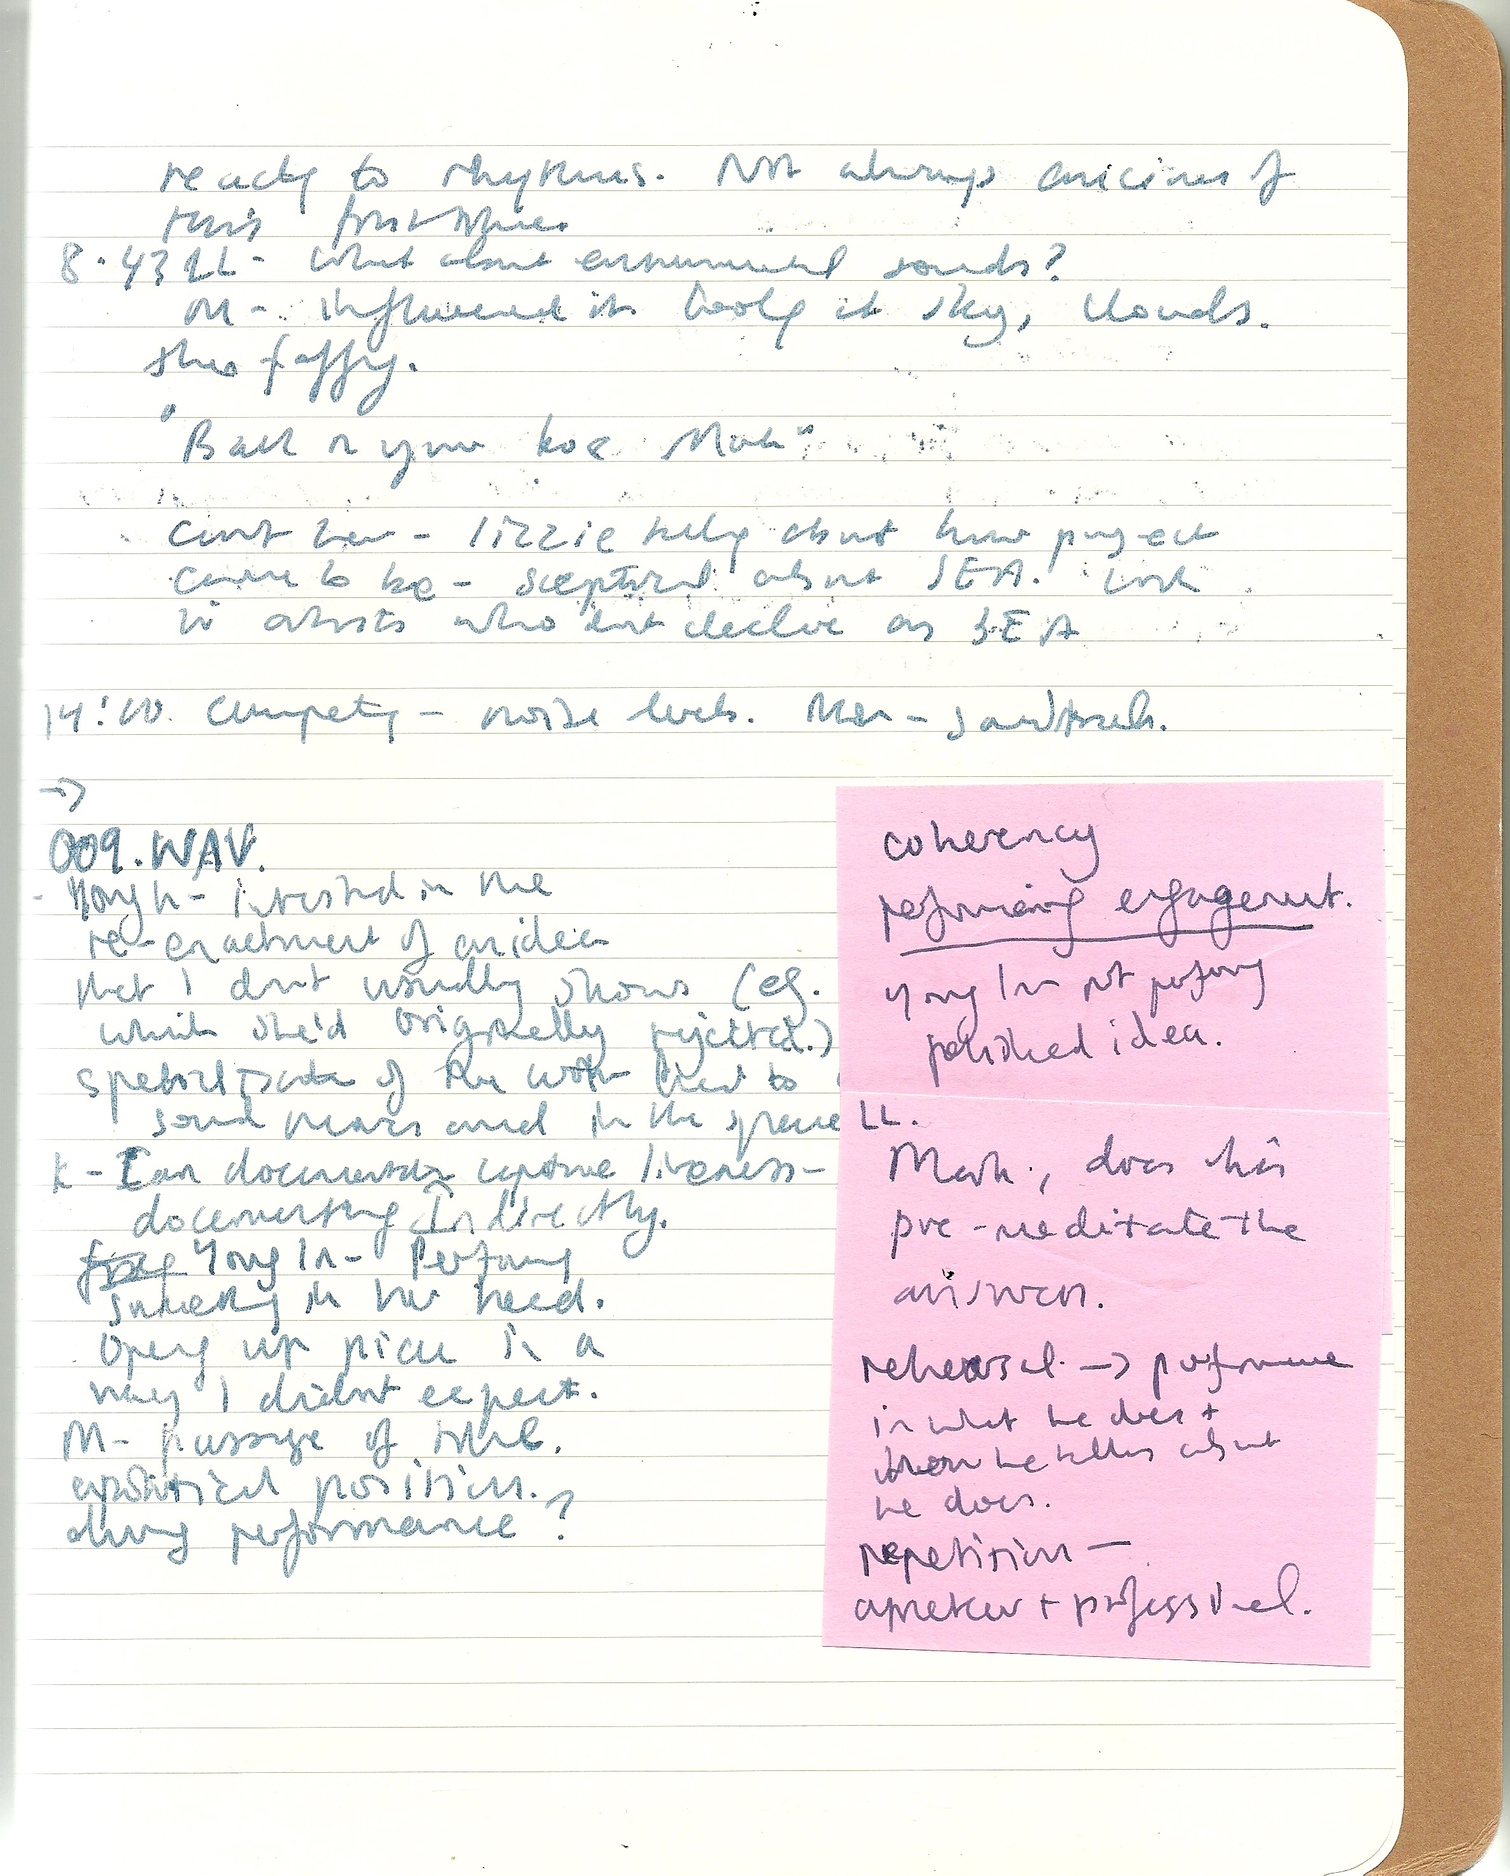 to rhythms. Not always of
this
8.43 LL - What about sounds?
M - influenced it. at sky, clouds.
"Back in your box Mark"
can't hear - Lizzie talking about how project
came to be - sceptical about SEA. work
w artists who don't declare as SEA
14:00. competing - noise levels. Mark -
->
009.WAV.
- Yong In - interested in the
re-enactment of an idea
that I don't usually show (eg.
which she'd originally rejected.)
of the work tied to
sound in the space
K - Can capture liveness -
documenting Indirectly.
Yong In - Performing
something in her head.
Opening up piece in a
way I didn't expect.
M - passage of time.
position.
during performance?
coherency
performing engagement.
Yong In not performing
polished idea.
LL.
Mark, does his
pre-meditate the
answers.
rehearsal -> performance
in what he does +
when he talks about
he does.
repetition -
amateur + professional.